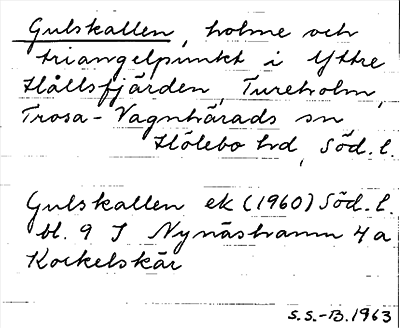 Gulskallen, holme och
triangelpunkt i Yttre
Hållsfjärden, Tureholm,
Trosa-Vagnhärads sn
Hölebo hd, Söd. l.
Gulskallen ek (1960) Söd. l.
bl. 9 I Nynäshamn 4a
Kockelskär
S.S.-B. 1963